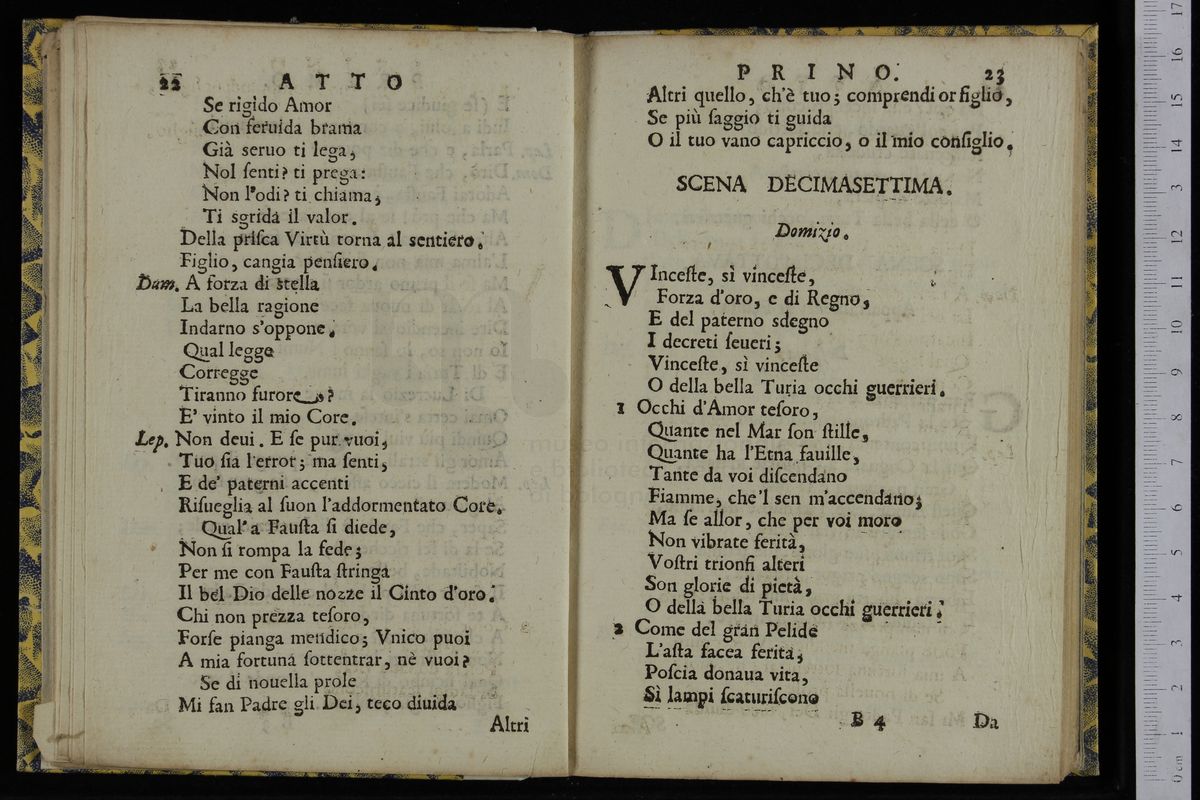 22 ATTO
Se rigido Amor
Con feruida brama
Già seruo ti lega,
Nol ſenti? ti prega:
Non l'odi? ti chiama,
Ti sgrida il valor.
Della priſca Virtù torna al sentiero.
Figlio, cangia penſiero.
Dam. A forza di stella
La bella ragione
Indarno s'oppone.
Qual legge
Corregge
Tiranno furore?
E' vinto il mio Core.
Lep. Non deui. E ſe pur vuoi,
Tuo ſia l'error; ma ſenti,
E de' paterni accenti
Riſueglia al ſuon l'addormentato Core.
Qual' a Fauſta ſi diede,
Non ſi rompa la fede;
Per me con Fauſta ſtringa
Il bel Dio delle nozze il Cinto d'oro.
Chi non prezza teſoro,
Forſe pianga mendico; Vnico puoi
A mia fortuna ſottentrar, nè vuoi?
Se di nouella prole
Mi fan Padre gli Dei, teco diuida
Altri
PRINO. 23
Altri quello, ch'è tuo; comprendi or figlio,
Se più ſaggio ti guida
O il tuo vano capriccio, o il mio conſiglio.
SCENA DECIMASETTIMA.
Domizio.
VInceſte, sì vinceſte,
Forza d'oro, e di Regno,
E del paterno sdegno
I decreti ſeueri;
Vinceſte, sì vinceſte
O della bella Turia occhi guerrieri.
1 Occhi d'Amor teſoro,
Quante nel Mar ſon ſtille,
Quante ha l'Etna fauille,
Tante da voi diſcendano
Fiamme, che'l sen m'accendano;
Ma ſe allor, che per voi moro
Non vibrate ferità,
Voſtri trionfi alteri
Son glorie di pietà,
O della bella Turia occhi guerrieri.
2 Come del gran Pelide
L'aſta facea ferita,
Poſcia donaua vita,
Sì lampi ſcaturiſcono
B 4 Da